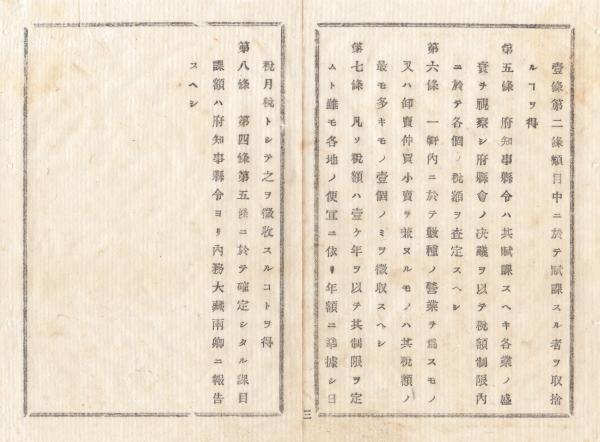 壹條第二條類目中ニ於テ賦課スル者ヲ取捨
ルヿヲ得
第五條　府知事縣令ハ其賦課スヘキ各業ノ盛
衰ヲ視察シ府縣會ノ决議ヲ以テ税額制限內
ニ於テ各個ノ税額ヲ査定スヘシ
第六條　一軒內ニ於テ數種ノ營業ヲ爲スモノ
又ハ卸賣仲買小賣ヲ兼ヌルモノハ其税額ノ
最モ多キモノ壹個ノミヲ徵収スヘシ
第七條　凡ソ税額ハ壹ケ年ヲ以テ其制限ヲ定
ムト雖モ各地ノ便宜ニ依リ年額ニ準據シ日
三
税月税トシテ之ヲ徵收スルコトヲ得
第八條　第四條第五條ニ於テ確定シタル課目
課額ハ府知事縣令ヨリ內務大藏兩卿ニ報告
スヘシ